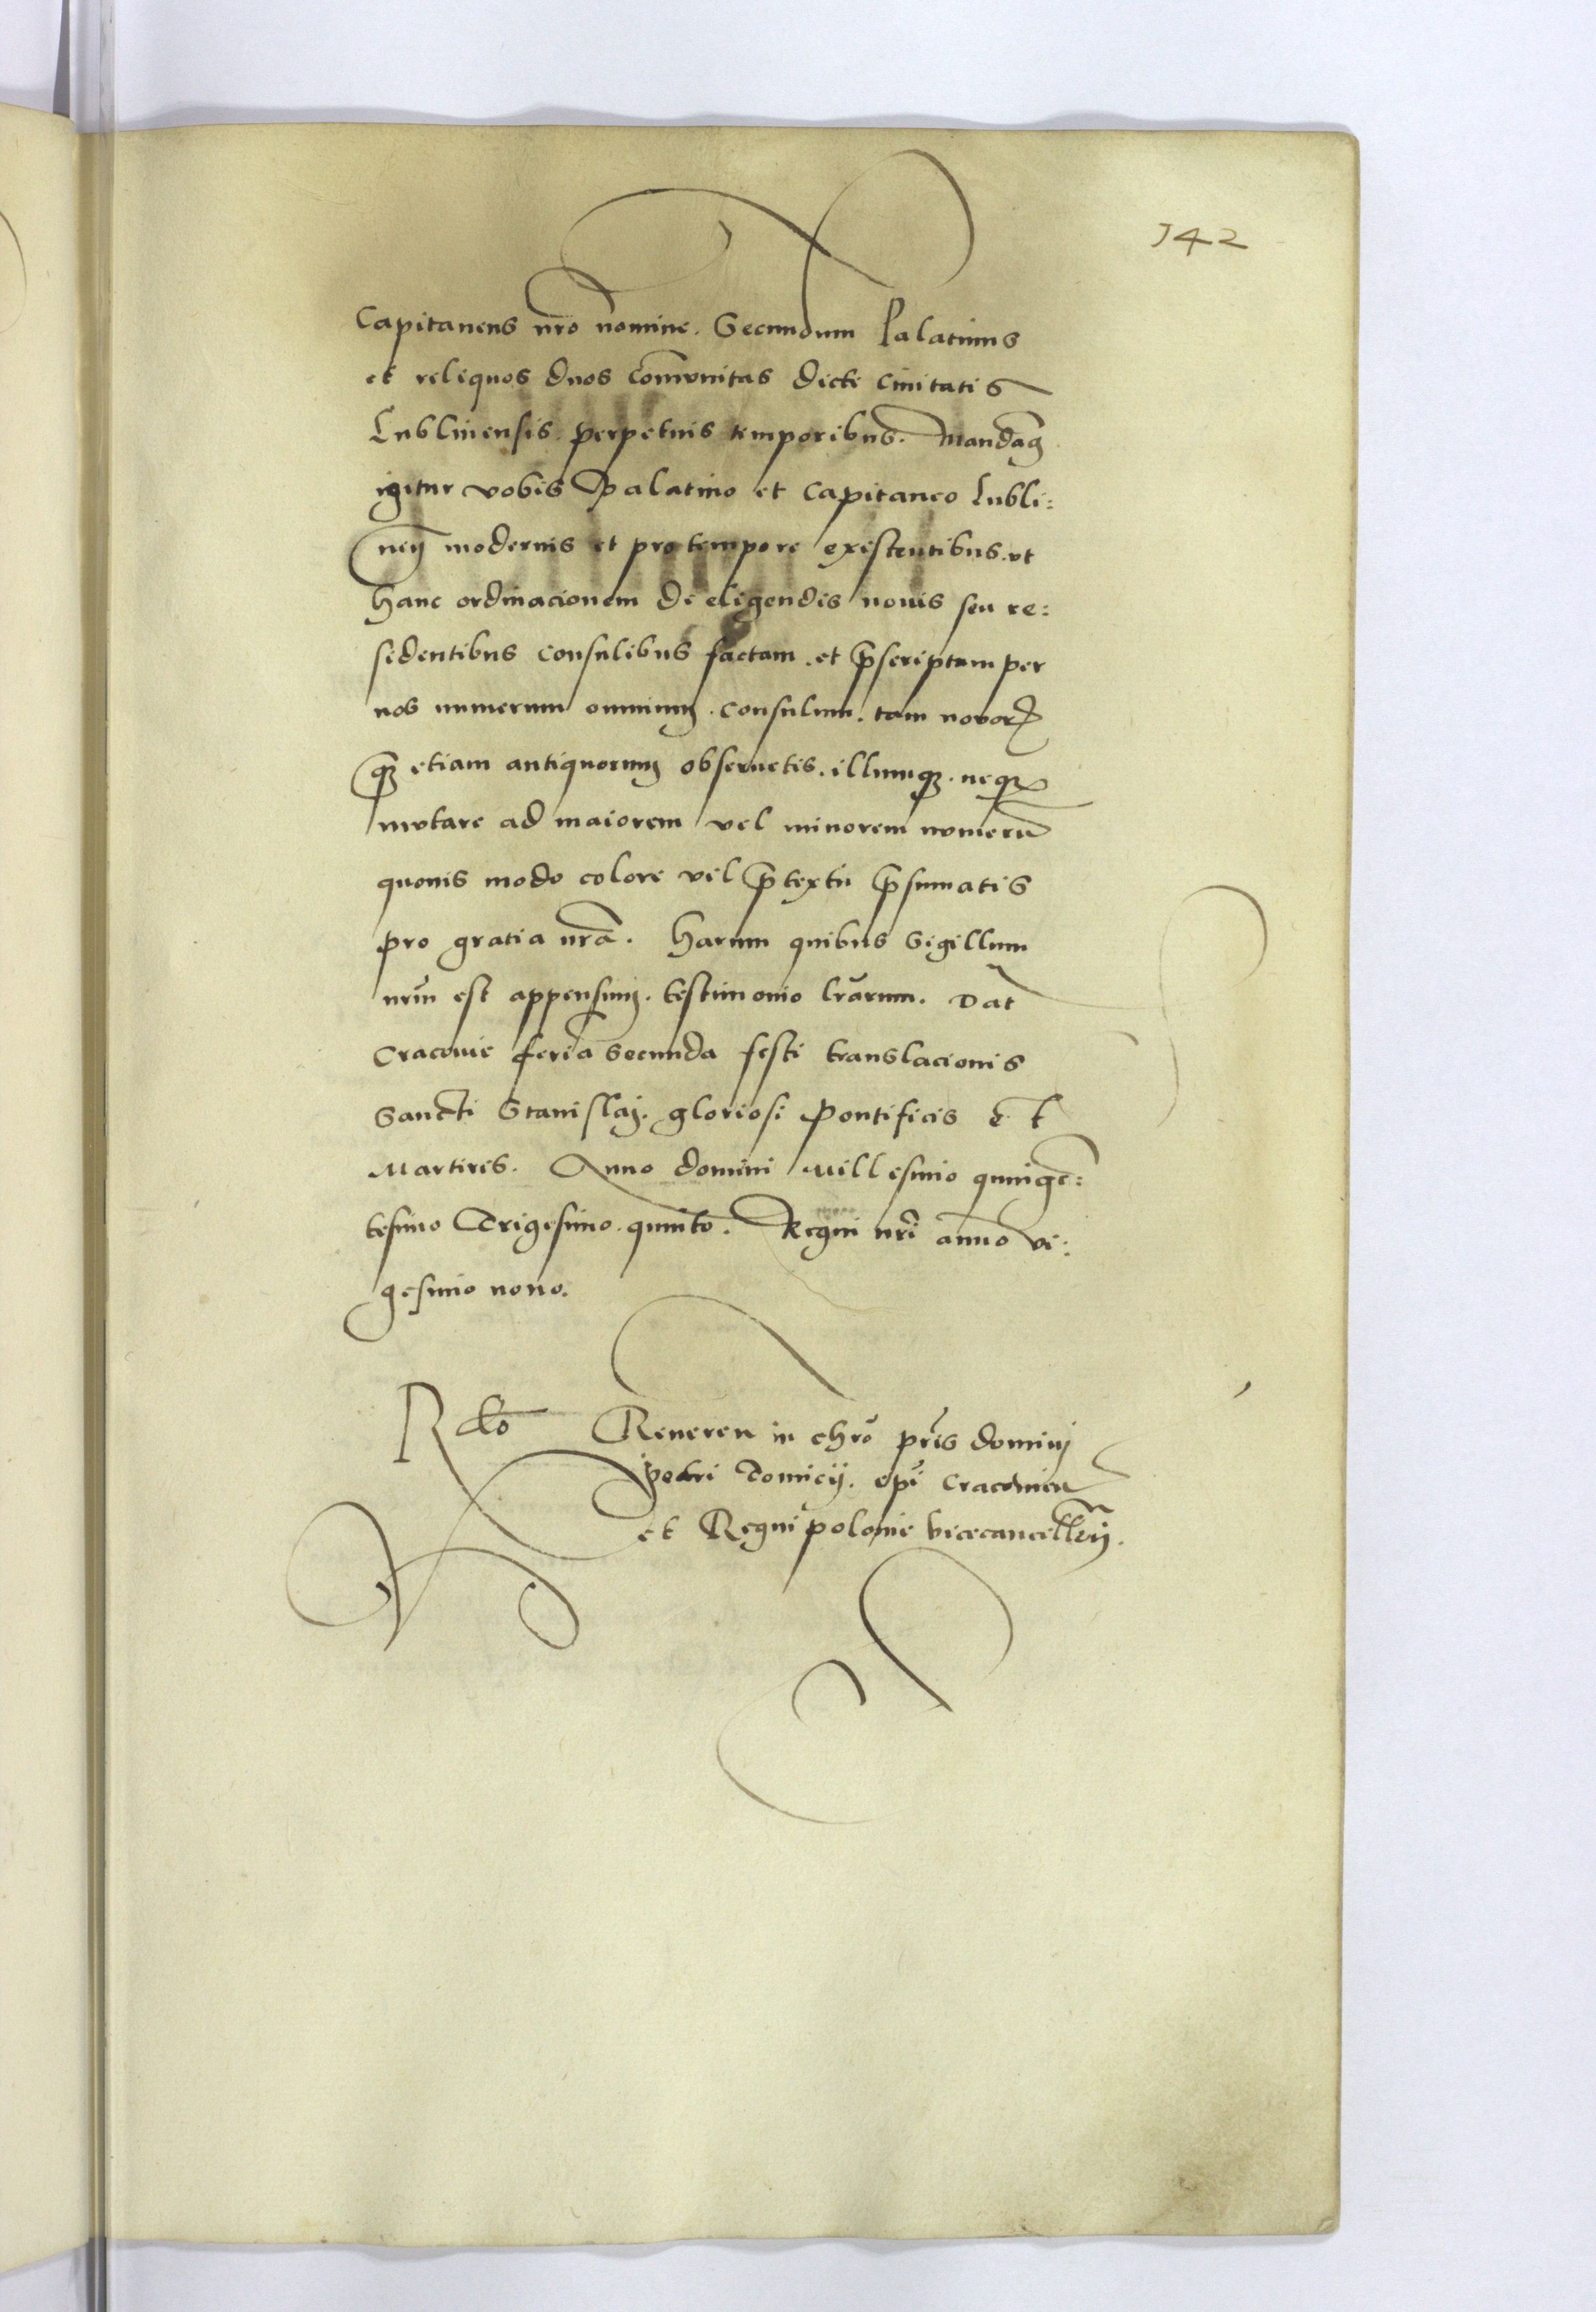 142
Capitaneus nro nomine. Secundum Palatinus
et reliquos duos com̄unitas dicte Ciuitatis
Lublinensis. perpetuis temporibus. Mandam̄
igitur vobis Palatino et Capitaneo Lubli:
neñ modernis et pro tempore existentibus. vt
hanc ordinacionem de eligendis nouis seu re:
sidentibus Consulibus factam. et p̄scriptum per
nos numerum omnium. Consulum. tam novorꝝ
qꝫ etiam antiquorum obseruetis. illumqꝫ. neqꝫ
mutare ad maiorem vel minorem numerū
quouis modo colore vel p̄textu p̄sumatis
pro gratia nrā. Harum quibus Sigillum
nrū est appensum. testimonio lrārum. Dat
Cracouie feria Secunda festi translacionis
Sancti Stanislaj. gloriosi Pontificis et
Martiris. Anno domini Millesimo quinge͞:
tesimo Trigesimo. quinto. Regni nrī anno vi:
gesimo nono.
Rᵈᵒ Reueren in chrō pr̄is dominj
Petri Tomicij. ep̄i Cracouien
et Regni polonie vicecancellr̄ij.